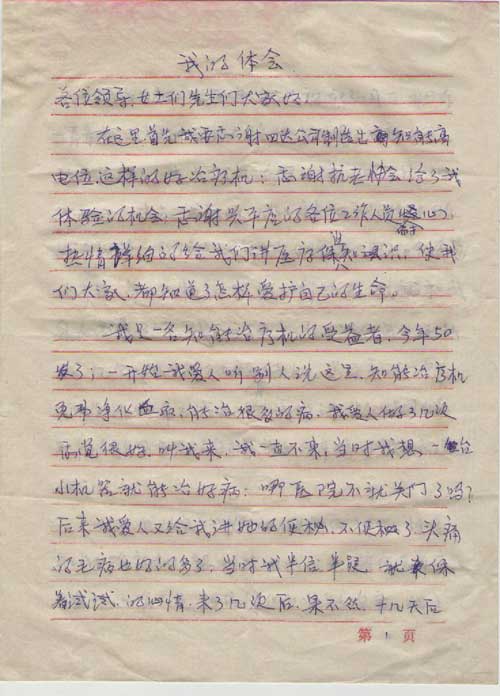 我的体会
各位领导,女士们先生们大家好
在这里首先我要感谢四达公司制造出高知能高
电位这样的好治疗机;感谢抗老协会给了我
体验的机会,感谢兴平店的各位工作人员耐心
热情详细的给我们讲医疗保健知识,使我
们大家,都知道了怎样爱护自己的生命。
我是一名知能治疗机的受益者,今年50
岁了,一开始我爱人听别人说这里,知能治疗机
免费净化血液,能治很多的病,我爱人做了几次
感觉很好,叫我来,我一直不来,当时我想,一台
小机器就能治好病,哪医院不就关门了吗?
后来我爱人又给我讲她的便秘,不便秘了,头痛
的毛病也好的多了,当时我半信半疑,就来保
着试试,的心情,来了几次后,果不然,十几天后
第 1 页